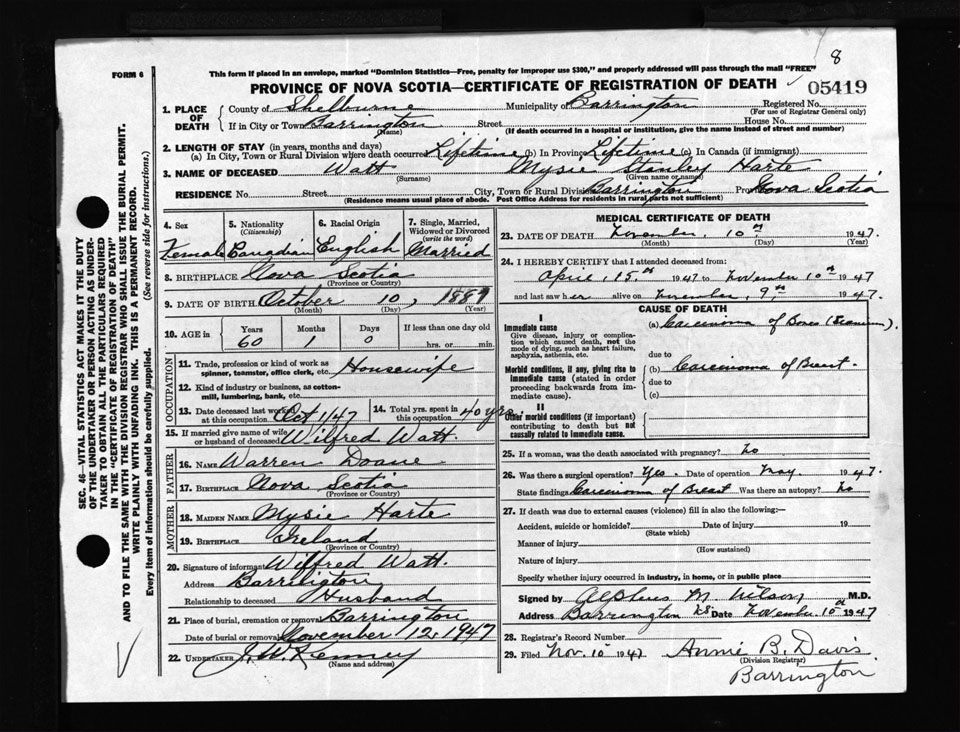 8
FORM 6
This form if placed in an envelope, marked "Dominion Statistics—Free, penalty for improper use $300," and properly addressed will pass through the mail "FREE"
PROVINCE OF NOVA SCOTIA—CERTIFICATE OF REGISTRATION OF DEATH
05419
1. PLACE OF DEATH
County of Shelburne Municipality of Barrington Registered No.
(For use of Registrar General only)
If in City or Town Barrington Street House No.
(Name) (If death occurred in a hospital or institution, give the name instead of street and number)
2. LENGTH OF STAY (in years, months and days)
(a) In City, Town or Rural Division where death occurred Lifetime (b) In Province Lifetime (c) In Canada (if immigrant)
3. NAME OF DECEASED Watt Mysie Stanley Harte
(Surname) (Given name or names)
RESIDENCE No. Street City, Town or Rural Division Barrington Province Nova Scotia
(Residence means usual place of abode. Post Office Address for residents in rural parts not sufficient)
4. Sex
Female
5. Nationality
(Citizenship)
Canadian
6. Racial Origin
English
7. Single, Married, Widowed or Divorced
(write the word)
Married
8. BIRTHPLACE Nova Scotia
(Province or Country)
9. DATE OF BIRTH October 10, 1887
(Month) (Day) (Year)
10. AGE in
Years Months Days If less than one day old
60 1 0 hrs. or min.
OCCUPATION
11. Trade, profession or kind of work as spinner, teamster, office clerk, etc. Housewife
12. Kind of industry or business, as cotton-mill, lumbering, bank, etc.
13. Date deceased last worked at this occupation Oct 1/47
14. Total yrs. spent in this occupation 40 yrs
15. If married give name of wife or husband of deceased Wilfred Watt.
FATHER
16. NAME Warren Doane
17. BIRTHPLACE Nova Scotia
(Province or Country)
MOTHER
18. MAIDEN NAME Mysie Harte
19. BIRTHPLACE Ireland
(Province or Country)
20. Signature of informant Wilfred Watt.
Address Barrington
Relationship to deceased Husband
21. Place of burial, cremation or removal Barrington
Date of burial or removal November 12, 1947
22. UNDERTAKER J. W. Kenney
(Name and address)
MEDICAL CERTIFICATE OF DEATH
23. DATE OF DEATH November 10th 1947.
(Month) (Day) (Year)
24. I HEREBY CERTIFY that I attended deceased from:
April, 15th 1947 to November 10th 1947
and last saw her alive on November, 9th 1947.
CAUSE OF DEATH
I
Immediate cause
Give disease, injury or complication which caused death, not the mode of dying, such as heart failure, asphyxia, asthenia, etc.
(a) Carcinoma of Bones
due to
Morbid conditions, if any, giving rise to immediate cause (stated in order proceeding backwards from immediate cause).
(b) Carcinoma of Breast.
due to
(c)
II
Other morbid conditions (if important) contributing to death but not causally related to immediate cause.
25. If a woman, was the death associated with pregnancy? No
26. Was there a surgical operation? Yes. Date of operation May. 1947.
State findings Carcinoma of Breast Was there an autopsy? No
27. If death was due to external causes (violence) fill in also the following:—
Accident, suicide or homicide? Date of injury 19
(State which)
Manner of injury
(How sustained)
Nature of injury
Specify whether injury occurred in industry, in home, or in public place
Signed by Alpheus M. Wilson M.D.
Address Barrington NS Date November 10th 1947
28. Registrar's Record Number
29. Filed Nov. 10 1947 Annie B. Davis
(Division Registrar)
Barrington
SEC. 46—VITAL STATISTICS ACT MAKES IT THE DUTY
OF THE UNDERTAKER OR PERSON ACTING AS UNDERTAKER TO OBTAIN ALL THE PARTICULARS REQUIRED
IN THE "CERTIFICATE OF REGISTRATION OF DEATH"
AND TO FILE THE SAME WITH THE DIVISION REGISTRAR WHO SHALL ISSUE THE BURIAL PERMIT.
WRITE PLAINLY WITH UNFADING INK. THIS IS A PERMANENT RECORD.
Every item of information should be carefully supplied. (See reverse side for instructions.)